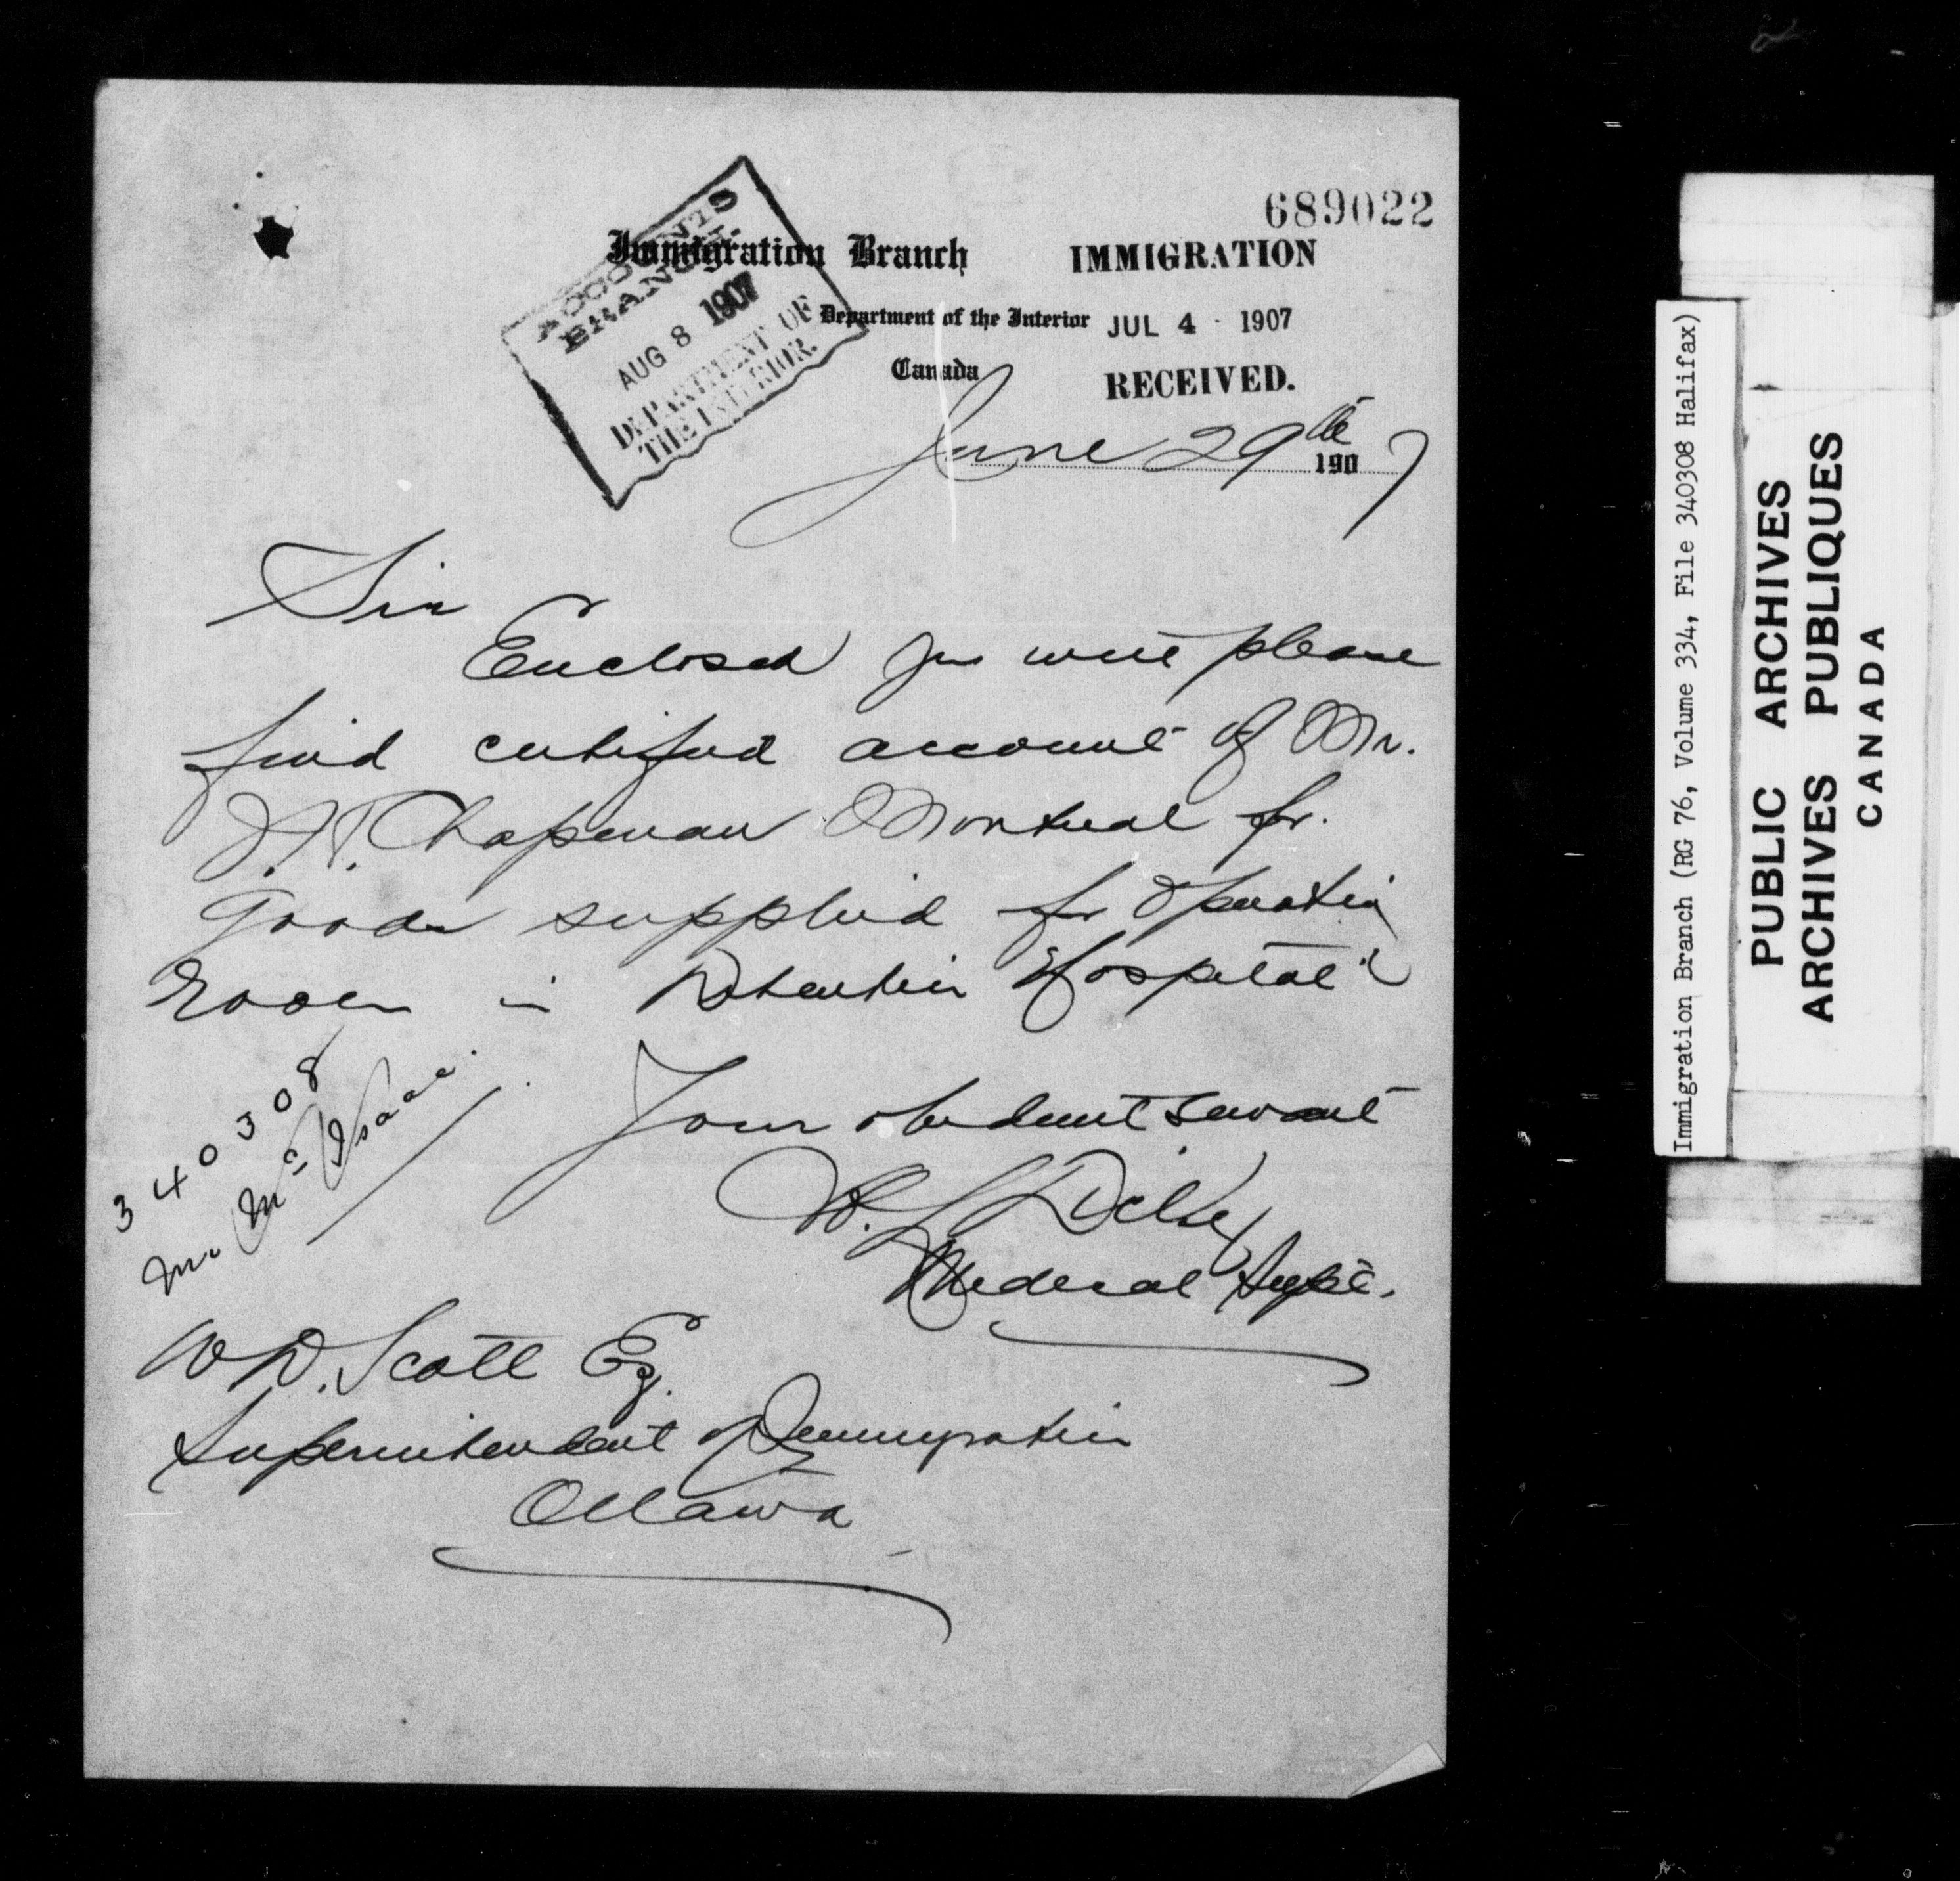 689022
Immigration Branch
IMMIGRATION
Department of the Interior
JUL 4 - 1907
Canada
RECEIVED.
ACCOUNTS
BRANCH.
AUG 8 1907
DEPARTMENT OF
THE INTERIOR.
June 29th 1907
Sir
Enclosed you will please
find certified account of Mr.
Chapman Montreal for
goods supplied for operating
room in Detention Hospital
Your obedient servant
W.
Medical Supt.
340308
Mr McIsaac.
W D. Scott Esq.
Superintendent of Immigration
Ottawa
Immigration Branch (RG 76, Volume 334, File 340308 Halifax)
PUBLIC ARCHIVES
ARCHIVES PUBLIQUES
CANADA